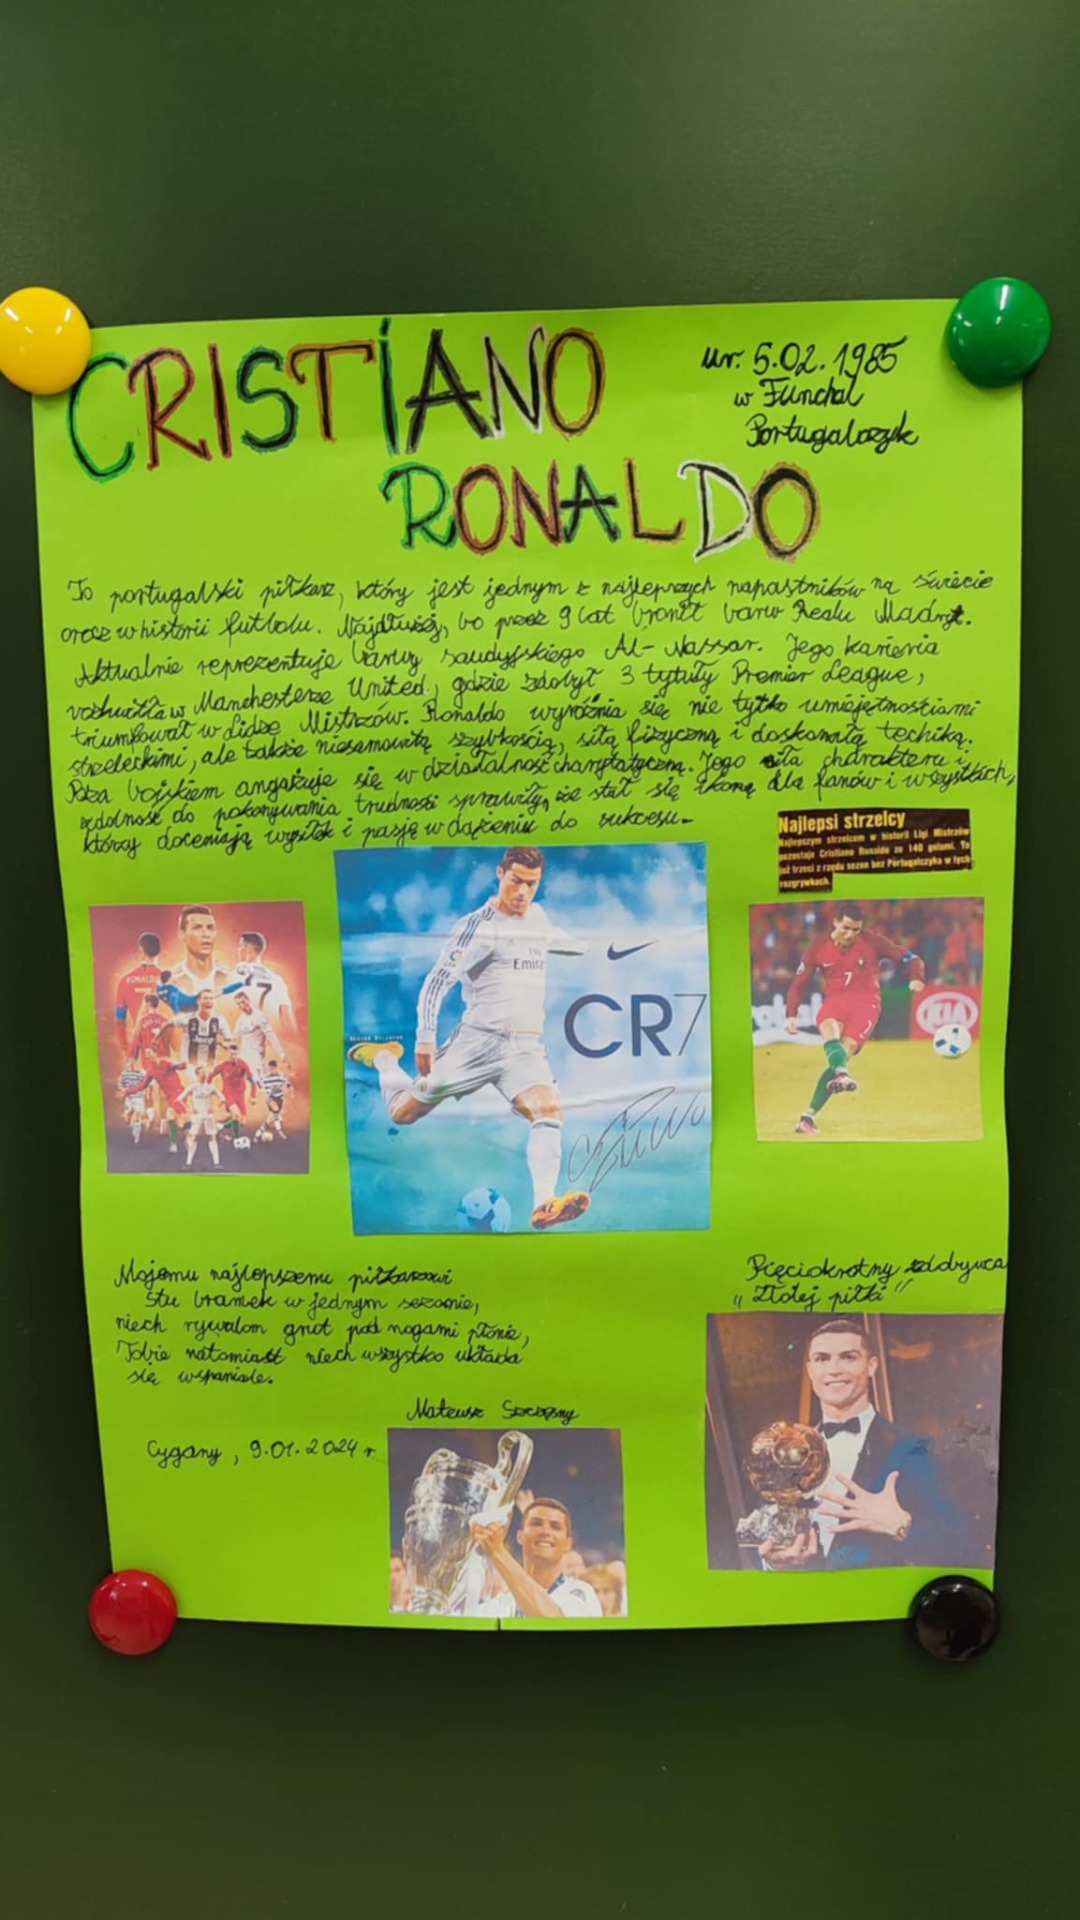 CRISTIANO
RONALDO
ur. 5.02.1985
w Funchal
Portugalczyk
To portugalski piłkarz, który jest jednym z najlepszych napastników na świecie
oraz w historii futbolu. Najdłużej, bo przez 9 lat bronił barw Realu Madryt.
Aktualnie reprezentuje barwy saudyjskiego Al-Nassar. Jego kariera
w Manchesterze United, gdzie zdobył 3 tytuły Premier League,
triumfował w Lidze Mistrzów. Ronaldo wyróżnia się nie tylko umiejętnościami
strzeleckimi, ale także niesamowitą szybkością, siłą fizyczną i doskonałą techiką.
Poza boiskiem angażuje się w działalność charytatyczną. Jego siła charakteru i
zdolność do pokonywania trudności sprawiły, że stał się ikoną dla fanów i wszystkich,
którzy doceniają wysiłek i pasję w dążeniu do sukcesu.
Najlepsi strzelcy
Najlepszym strzelcem w historii Ligi Mistrzów
pozostaje Cristiano Ronaldo ze 140 golami. To
już trzeci z rzędu sezon bez Portugalczyka w tych
rozgrywkach.
RONALDO
7
7
Jeep
Fly
Emirates
CR7
7
KIA
Mojemu najlepszemu piłkarzowi
Stu bramek w jednym sezonie,
niech rywalom grut pod nogami płonie,
Tobie natomiast niech wszystko układa
się wspaniale.
Mateusz Szczęsny
Cygany, 9.01.2024 r
Pięciokrotny zdobywca
"Złotej piłki"